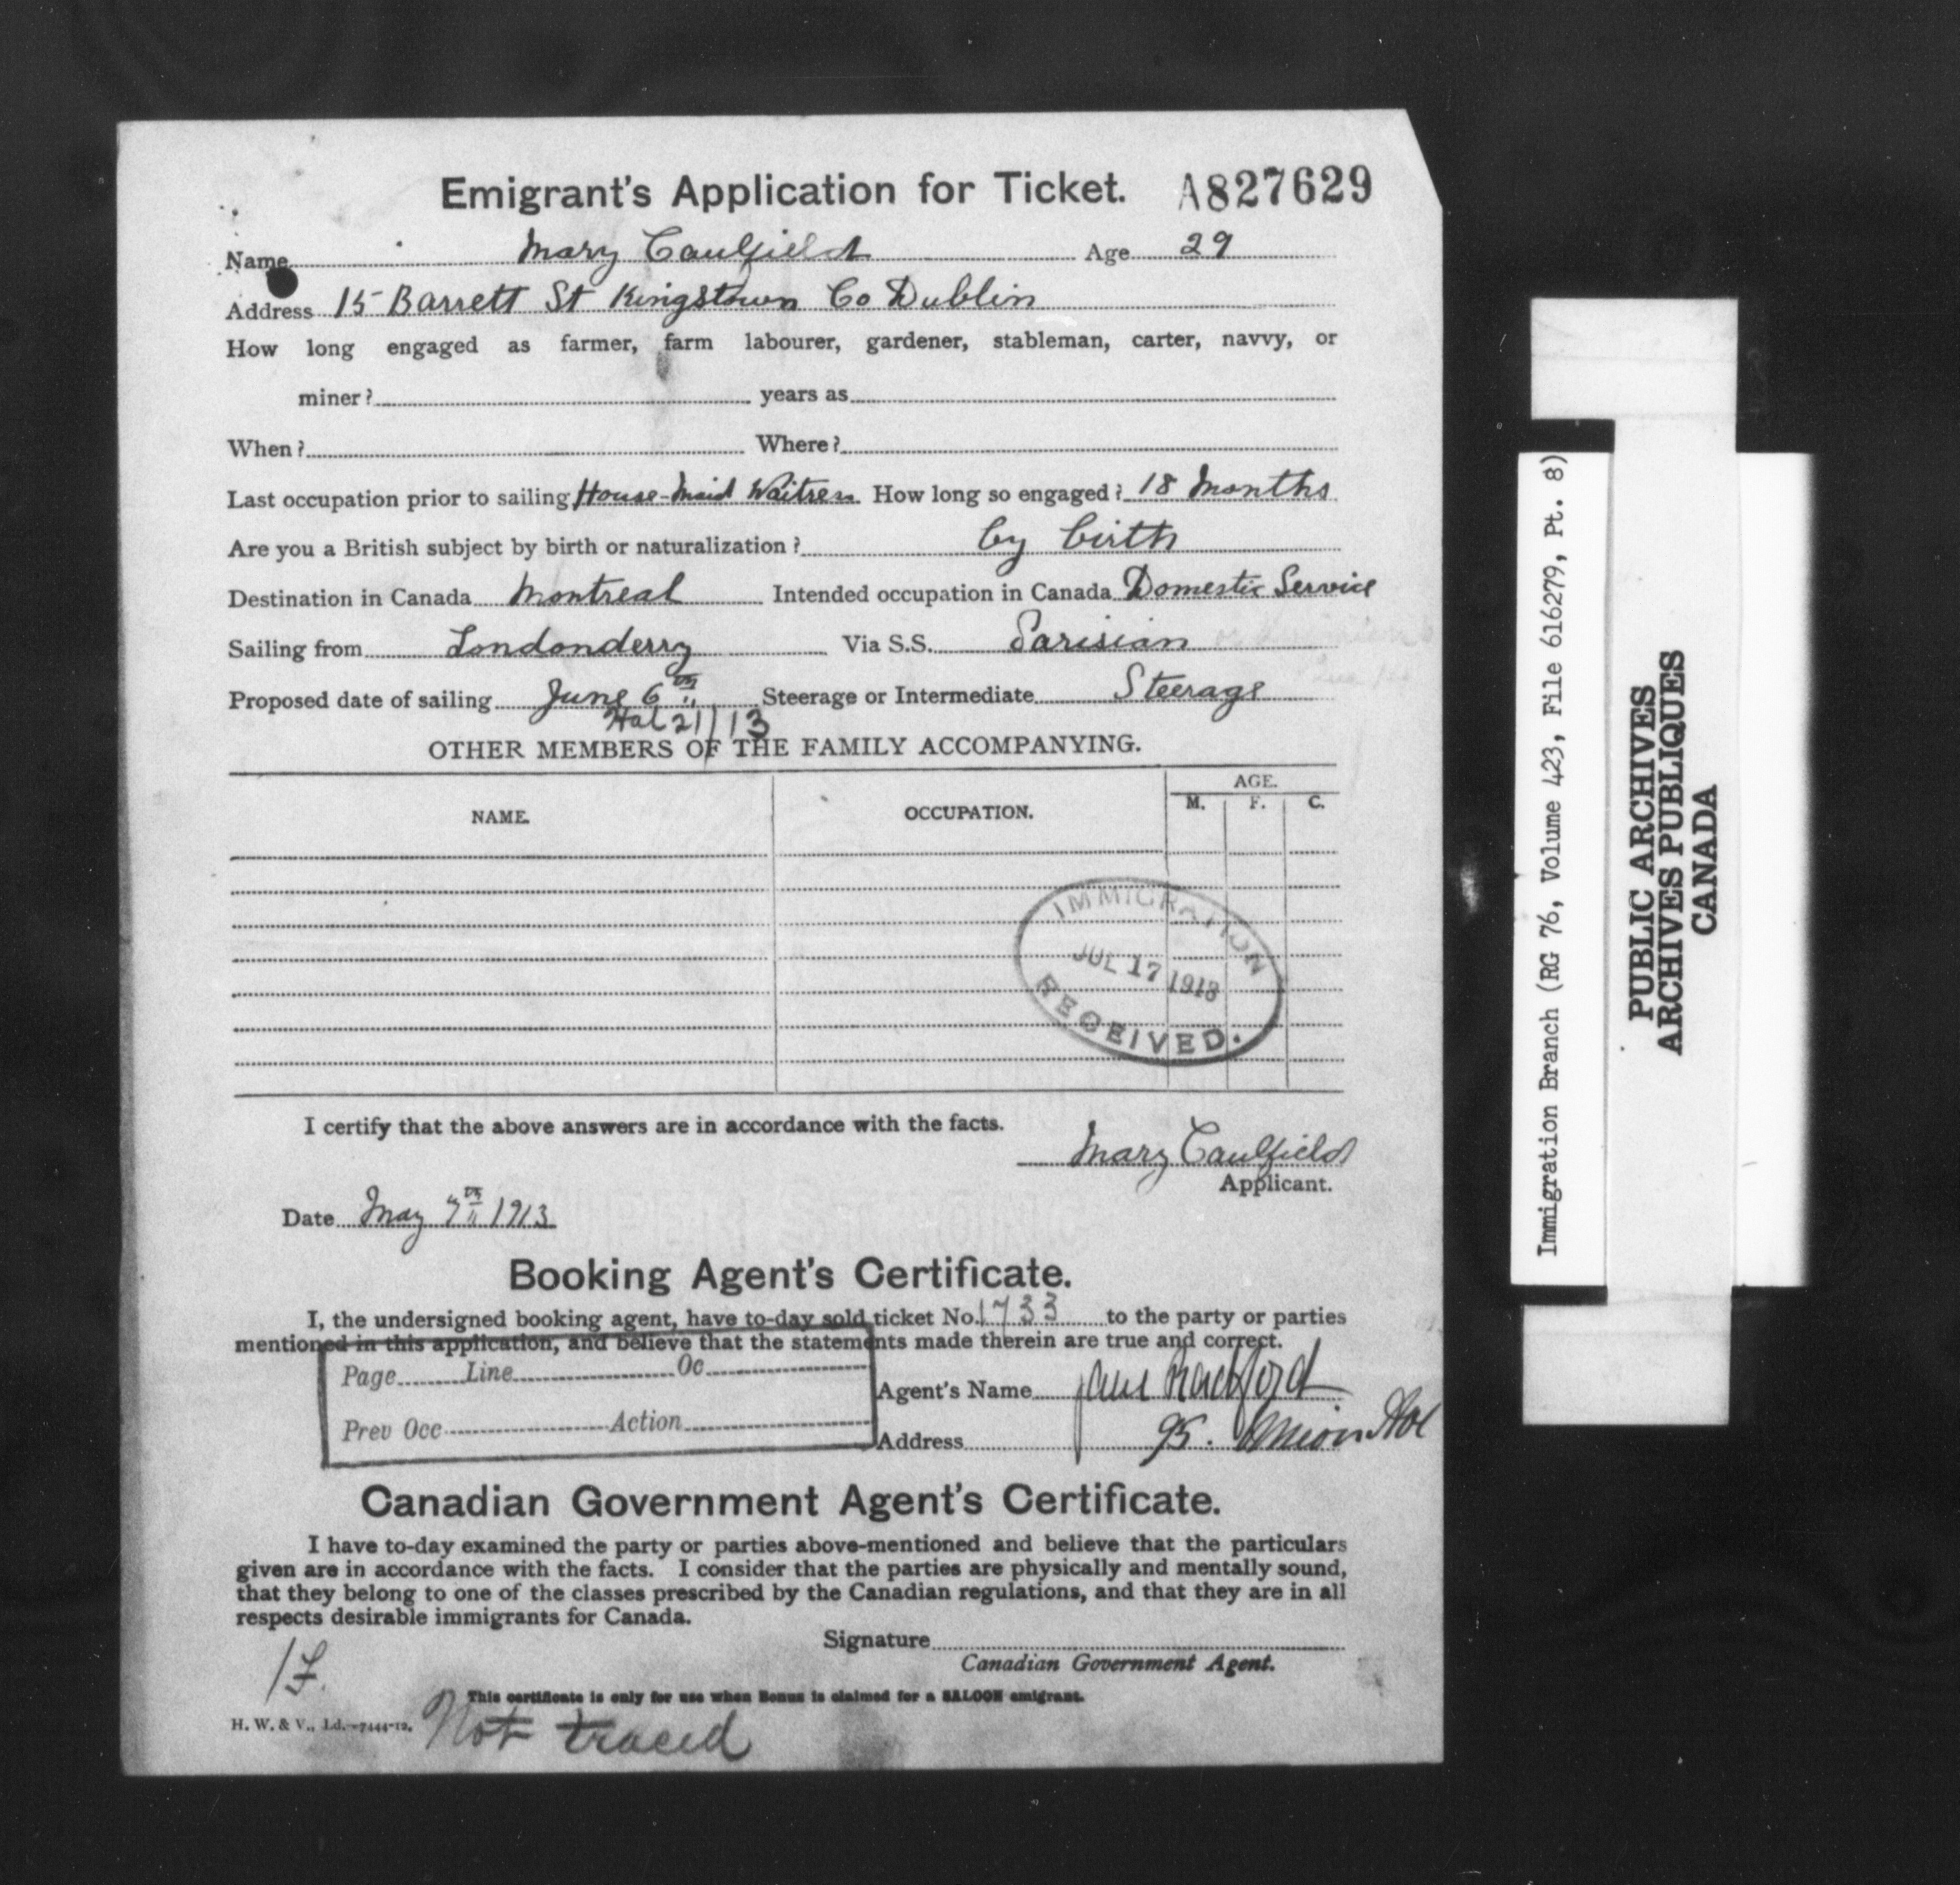 Emigrant's Application for Ticket. A827629
Name Mary Caulfield Age 29
Address 15 Barrett St Kingstown Co Dublin
How long engaged as farmer, farm labourer, gardener, stableman, carter, navvy, or
miner? years as
When? Where?
Last occupation prior to sailing House-Maid Waitress How long so engaged? 18 Months
Are you a British subject by birth or naturalization? by birth
Destination in Canada Montreal Intended occupation in Canada Domestic Service
Sailing from Londonderry Via S.S. Parisian
Proposed date of sailing June 6th Steerage or Intermediate Steerage
Hal 21/13
OTHER MEMBERS OF THE FAMILY ACCOMPANYING.
NAME. OCCUPATION. AGE.
M. F. C.
IMMIGRATION
JUL 17 1913
RECEIVED.
I certify that the above answers are in accordance with the facts.
Mary Caulfield
Applicant.
Date May 7th 1913
Booking Agent's Certificate.
I, the undersigned booking agent, have to-day sold ticket No. 1733 to the party or parties
mentioned in this application, and believe that the statements made therein are true and correct.
Page Line Oc
Agent's Name
Prev Occ Action
Address 95.
Canadian Government Agent's Certificate.
I have to-day examined the party or parties above-mentioned and believe that the particulars
given are in accordance with the facts. I consider that the parties are physically and mentally sound,
that they belong to one of the classes prescribed by the Canadian regulations, and that they are in all
respects desirable immigrants for Canada.
Signature
Canadian Government Agent.
This certificate is only for use when Bonus is claimed for a SALOON emigrant.
H. W. & V., Ld.-7444-12.
Not traced
Immigration Branch (RG 76, Volume 423, File 616279, Pt. 8)
PUBLIC ARCHIVES
ARCHIVES PUBLIQUES
CANADA